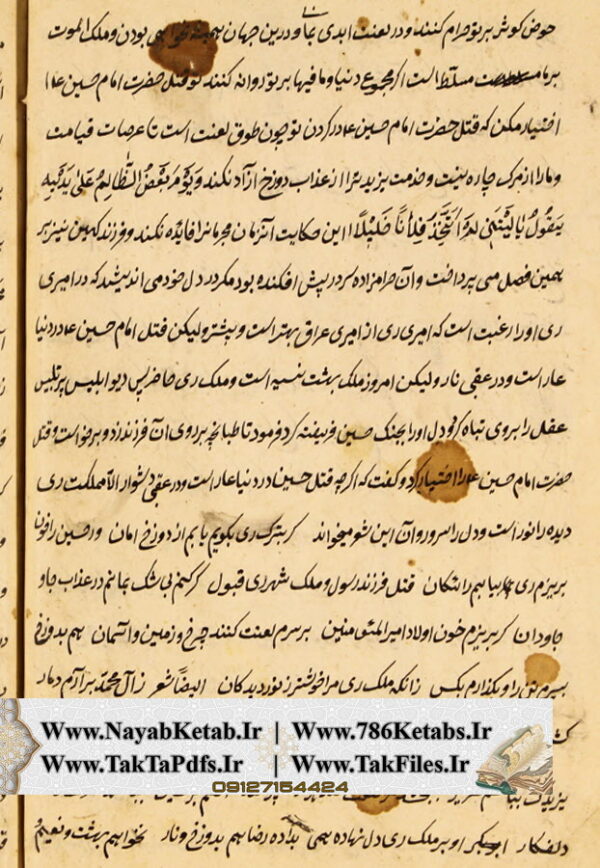 حوض کوثر بر تو حرام کنند و در لعنت ابدی بمانی و درین جهان همیشه نخواهی بودن و ملک الموت
بر ما مسلط است اگر مجموع دنیا و مافیها بر تو روانه کنند تو قتل حضرت امام حسین ع را
اختیار مکن که قتل حضرت امام حسین ع در کردن تو چون طوق لعنت است تا عرصات قیامت
و ما را از مرک چاره نیست و خدمت یزید ترا از عذاب دوزخ ازاد نکند وَیَوْمَ یَعَضُّ الظَّالِمُ عَلیٰ یَدَیْهِ
یَقُولُ یَا لَیْتَنِی لَمْ اَتَّخِذْ فُلَاناً خَلِیْلًا این حکایت آنزمان مجرمانرا فایده نکند و فرزند کهین نیز بر
همین فصل می پرداخت و آن حرامزاده سر در پیش افکنده بود مکر در دل خود می اندیشد که در امیری
ری او را رغبت است که امیری ری از امیری عراق بهتر است و بیشتر ولیکن قتل امام حسین ع در دنیا
عار است و در عقبی نار ولیکن امروز ملک بهشت نسیه است و ملک ری حاضر پس دیو ابلیس پر تلبیس
عقل را بروی تباه کرد و دل او را بجنک حسین فریفته کرد فرمود تا طبانچه بر روی آن فرزند زد و برخواست و قتل
حضرت امام حسین ع را اختیار کرد و گفت که اگرچه قتل حسین در دنیا عار است و در عقبی دشوار الا مملکت ری
دیده را نور است و دل را سرور و آن این شعر میخواند کر بترک ری بکویم یابم از دوزخ امان ور حسین را خون
بریزم ری بیابم رایکان قتل فرزند رسول و ملک شهر ری قبول کر کنم بی شک بمانم در عذاب جاو
جاودان کر بریزم خون اولاد امیر المؤمنین بر سرم لعنت کنند چرخ و زمین و آسمان هم بدوزخ
بسپرم تن را و نکذارم بکس زانکه ملک ری مرا خوشتر ز نور دیدکان ایضاً شعر ز آل محمد برآرم دمار
www.NayabKetab.Ir | Www.786Ketabs.Ir
Www.TakTaPdfs.Ir | Www.TakFiles.Ir
09127154424
دلفکار او بر ملک ری دل نهاده همی بداده رضا هم بدوزخ و نار نخواهم بهشت و نعیم و